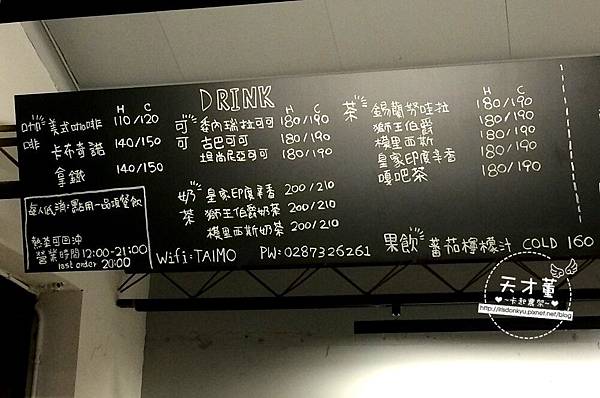 DRINK
咖啡 H C
美式咖啡 110/120
卡布奇諾 140/150
拿鐵 140/150
每人低消:點用一品項餐飲
熱茶可回沖
營業時間12:00-21:00
last order 20:00
可可 H C
委內瑞拉可可 180/190
古巴可可 180/190
坦尚尼亞可可 180/190
奶茶
皇家印度辛香 200/210
獅王伯爵奶茶 200/210
模里西斯奶茶 200/210
Wifi:TAIMO PW:0287326261
茶 H C
錫蘭努哇拉 180/190
獅王伯爵 180/190
模里西斯 180/190
皇家印度辛香 180/190
嘎吧茶 180/190
果飲 蕃茄檸檬汁 COLD 160
天才董
~卡起農架~
http://irisdonkyu.pixnet.net/blog